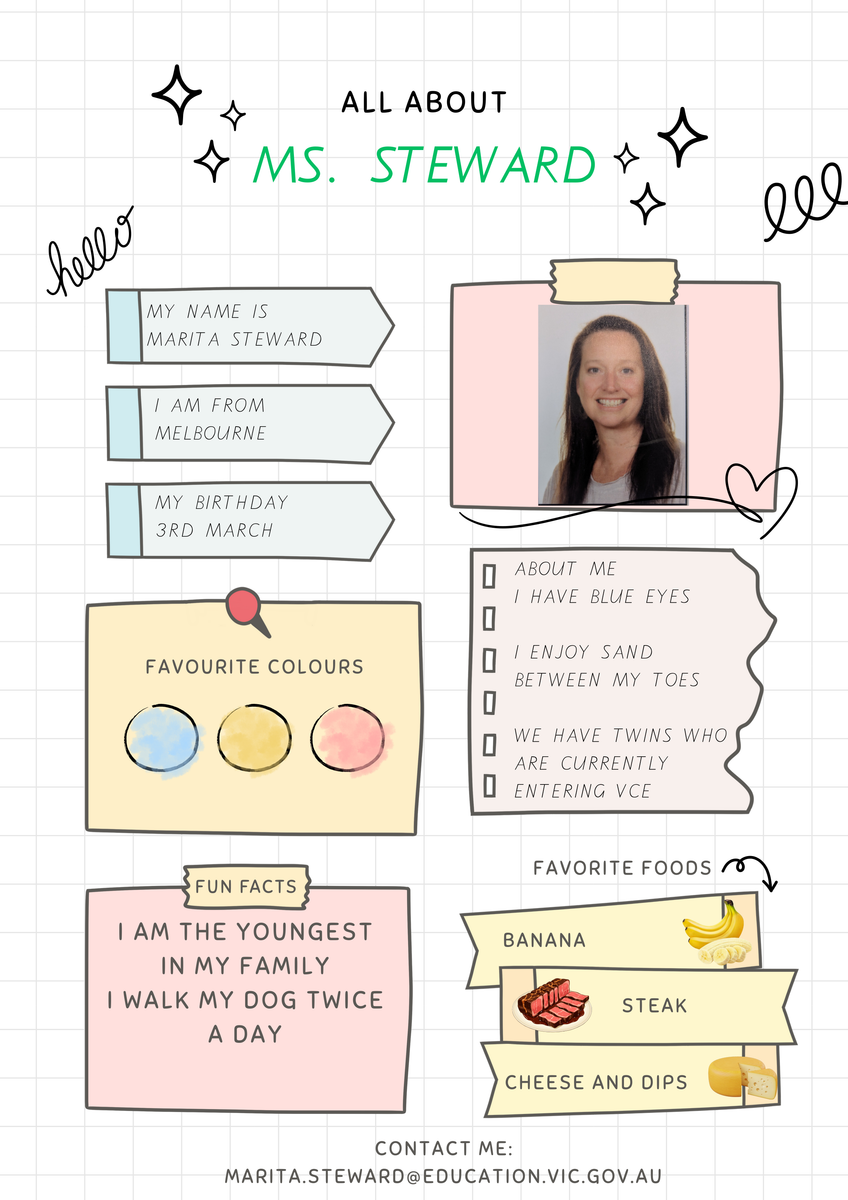 ALL ABOUT
MS. STEWARD
hello
MY NAME IS
MARITA STEWARD
I AM FROM
MELBOURNE
MY BIRTHDAY
3RD MARCH
ABOUT ME
I HAVE BLUE EYES
I ENJOY SAND
BETWEEN MY TOES
WE HAVE TWINS WHO
ARE CURRENTLY
ENTERING VCE
FAVOURITE COLOURS
FUN FACTS
I AM THE YOUNGEST
IN MY FAMILY
I WALK MY DOG TWICE
A DAY
FAVORITE FOODS
BANANA
STEAK
CHEESE AND DIPS
CONTACT ME:
MARITA.STEWARD@EDUCATION.VIC.GOV.AU